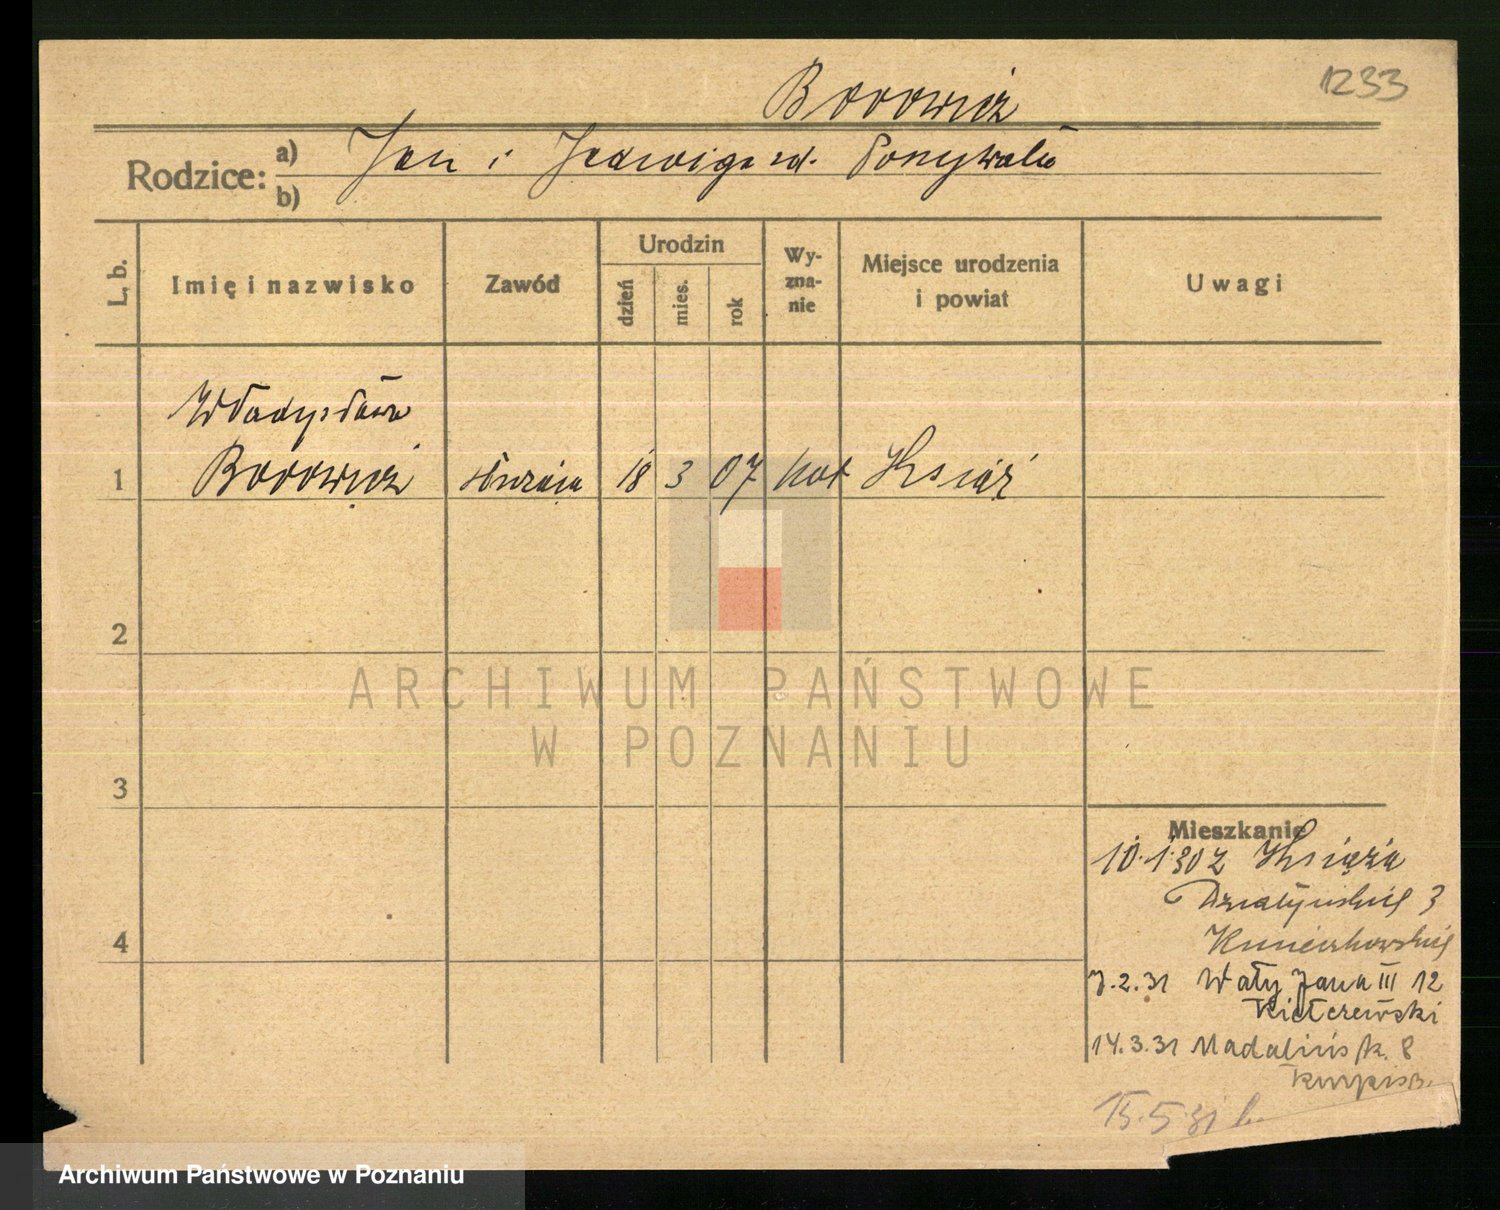 1233
Borowicz
Rodzice: a) Jan i Jadwiga zd.
b)
L. b. Imię i nazwisko Zawód Urodzin dzień mies. rok Wy-zna-nie Miejsce urodzenia i powiat Uwagi
Władysława
1 Borowicz służąca 18 3 07 kat Książ
2
ARCHIWUM PAŃSTWOWE
W POZNANIU
3
4
Mieszkanie
10.1.30 z Książa
Działyńskiej 3
7.2.31 Wały Jana III 12
Kiełczewski
14.3.31 Madalińsk. 8
15.5.31
Archiwum Państwowe w Poznaniu